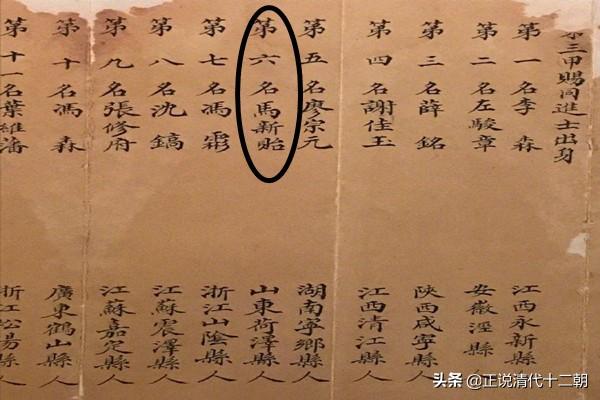 第三甲賜同進士出身
第一名李森 江西永新縣人
第二名左駿章 安徽涇縣人
第三名薛銘 陝西咸寧縣人
第四名謝佳玉 江西清江縣人
第五名廖宗元 湖南寧鄉縣人
第六名馬新貽 山東荷澤縣人
第七名馮霦 浙江山陰縣人
第八名沈鎬 江蘇震澤縣人
第九名張修府 江蘇嘉定縣人
第十名馮森 廣東鶴山縣人
第十一名葉維藩 浙江松陽縣人
头条 @正说清代十二朝